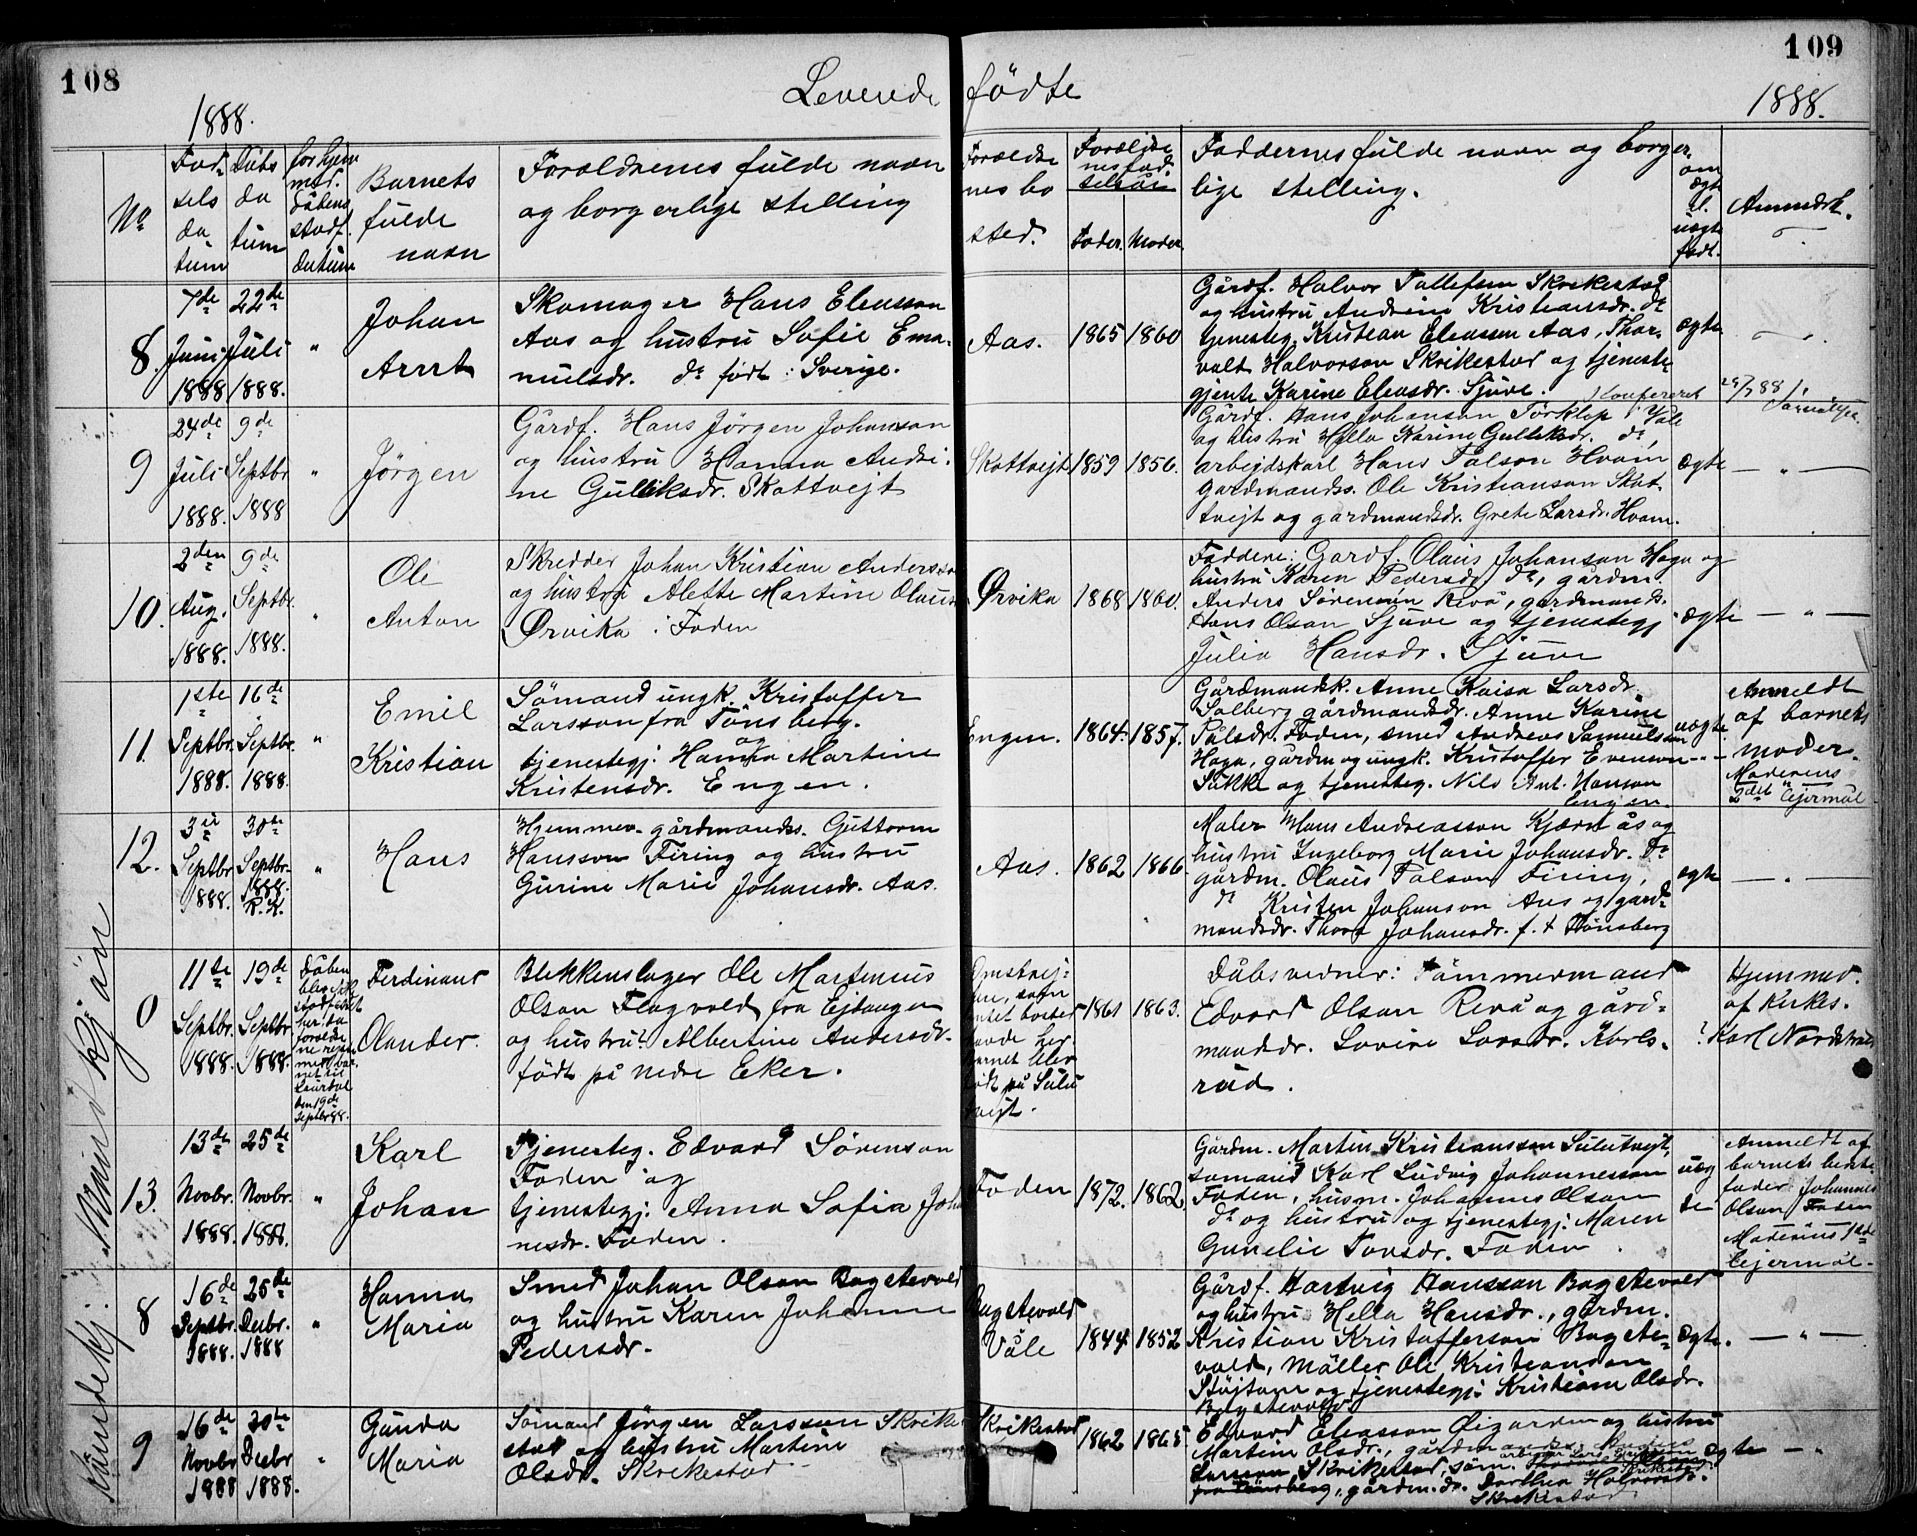 108
109
Levende fødte
1888.
1888.
No
Fød-
sels
da
tum
Dåbs
da
tum
Barnets
fulde
navn
Forældrenes fulde navn
og borgerlige stelling
Foreldre
nes bo
sted.
Foreldre
nes fød
selsår
Fader. Moder
Faddernes fulde navn og borger-
lige stelling.
om
ægte
el.
uægte
født.
Anmerk.
8.
7de
Juni
1888
22de
Juli
1888.
"
Johan
Skomager Hans Eleasson
Aas og hustru Sofie Ema-
nuelsdr. do født i Sverige.
Aas.
1865
1860
Gårdf. Halvor Tollefsen Skrikestad
og hustru Andrine Kristiansdr. do
tjenesteg. Kristian Eleassen Aas, Thor-
vald Halvorson Skrikestad og tjeneste-
gjente Karine Eleasdr. Sjuve.
ægte
Konfereret
9
24de
Juli
1888.
9de
Septbr
1888
"
Jørgen
Gårdf. Hans Jørgen Johanson
og hustru Hanna Andri-
ne Gulliksdr. Skattvejt
Skattvejt
1859
1856.
Gårdf. Hans Johanson Torklop i Våle
og hustru Hella Karine Gulliksdr. do,
arbejdskarl Hans Pålson Hvam
gardmandss. Ole Kristianson Skat-
tvejt og gardmandsdr. Grete Larsdr. Hvam.
ægte
— " —
10.
2den
Aug.
1888.
9de
Septbr.
1888.
"
Ole
Anton
Skredder Johan Kristian Andersson
og hustru Alette Martine Olausd
Ørvika i Foden
Ørvika
1868
1860.
Faddere: Gardf. Olaus Johanson Haga og
hustru Karen Pedersdr. do, gårdm.
Anders Sørensen Revå, gårdmands.
Hans Olson Sjuve og tjenestegj
Julia Hansdr. Sjuve
ægte
— " —
11.
1ste
Septbr.
1888.
16de
Septbr.
1888.
"
Emil
Kristian
Sømand ungk. Kristoffer
Larsson fra Tønsberg.
og
tjenestegj. Hanna Martine
Kristensdr. Engen.
Engen.
1864.
1857.
Gårdmandsk. Anne Kaisa Larsdr.
Solberg gårdmandsdr. Anne Karine
Pålsdr. Foden, smed Andreas Samuelsson
Haga, gårdm og ungk. Kristoffer Evenson
Sukke og tjenesteg. Nils Ant. Hanson
Engen
uægte
Anmeldt
af barnets
moder.
Moderens
2det lejermål
12.
3je
Septbr
1888.
30te
Septbr.
1888.
R. K.
"
Hans
Hjemmev. gårdmandss. Guttorm
Hansson Firing og hustru
Gurine Marie Johansdr. Aas.
Aas.
1862
1866.
Maler Hans Andreasson Kjærås og
hustru Ingeborg Marie Johansdr. do
gårdm. Olaus Pålson Firing,
do Kristen Johanson Aas og gård-
mandsdr. Thora Johansdr. f. + Tønsberg
ægte
— " —
0
11te
Septbr.
1888.
19de
Septbr.
1888.
Ferdinant
Olander.
Blikkenslager Ole Martenius
Olson Flagvold fra Ejdanger
og hustru Albertine Andersdr.
født på nedre Eker.
1861
1863.
Dåbsvidner: Tømmermand
Edvard Olson Revå og gård-
mandsdr. Lovise Larsdr. Karls-
rud.
Hjemmed.
af kirkes.
Karl Nordstrand
13.
13de
Novbr.
1888.
25de
Novbr.
1888.
"
Karl
Johan
Tjenesteg. Edvard Sørenson
Foden og
tjenestegj. Anna Sofia Joha
nesdr. Foden.
Foden
1872.
1862.
Gårdm. Martin Kristiansson Sulutvejt,
sømand Karl Ludvig Johannesson
Foden, husm. Johannes Olson
do og hustru og tjenestegj. Maren
Gunelie Tonsdr. Foden.
uæg
te
Anmeldt af
barnets beste
fader Johannes
Olson Foden
Moderens 1ste
lejermål.
8
16de
Septbr.
1888.
25de
Desbr.
1888
"
Hanna
Maria
Smed Johan Olson Bagstevold
og hustru Karen Johanne
Pedersdr.
Bagstevold
Våle
1844.
1852
Gårdf. Hartvig Hansson Bagstevold
og hustru Hella Hansdr., gårdm.
Kristian Kristofferson Bagste-
vold, møller Ole Kristianson
Støjtum og tjenestegj. Kristiane Olsdr.
Bagstevold
Ægte.
— " —
9
16de
Novbr
1888
30te
Desbr
1888.
"
Gunda
Maria
Sømand Jørgen Larsson Skrike
stad og hustru Martine
Olsdr. Skrikestad
Skrikestad
1862
1865
Edvard Eleasson Øigarden og hustru
Martine Olsdr., gårdm
Skrikestad
gårdm. dr. Dorthea Halvorsdr.
Skrikestad
ægte
— "